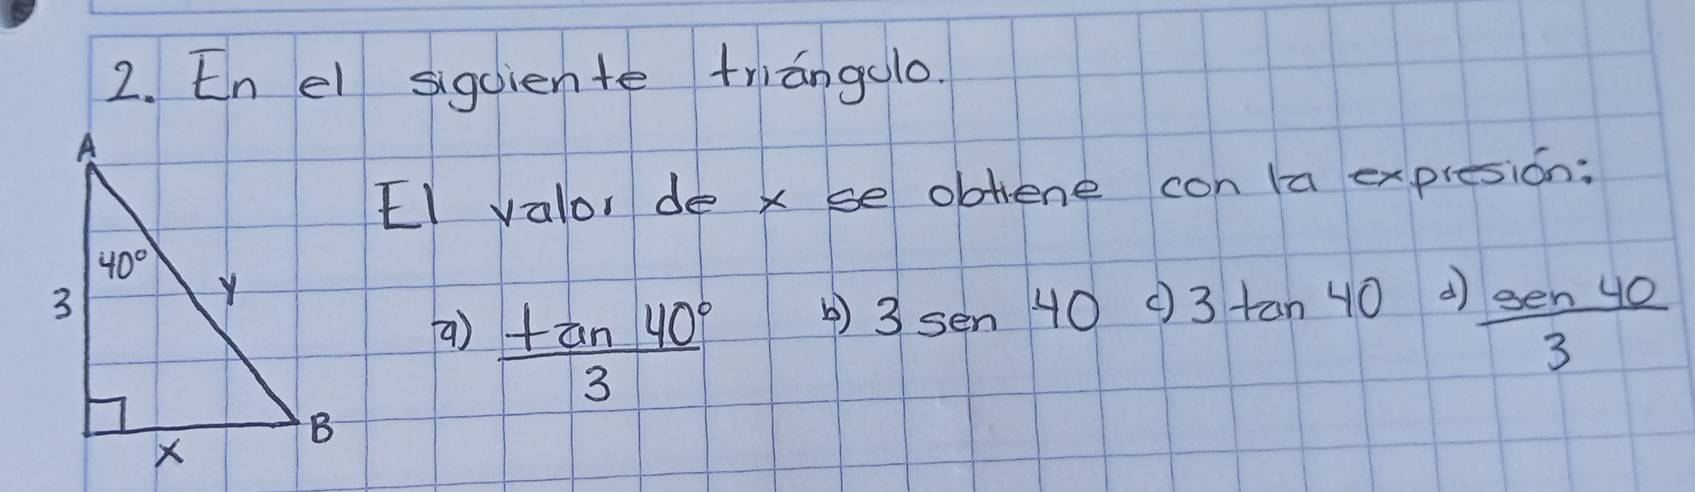 2. En el siguiente triángulo.
A
El valor de x se obtiene con la expresión:
40°
3
y
a) tan 40° / 3 b) 3 sen 40 c) 3 tan 40 d) sen 40 / 3
B
x